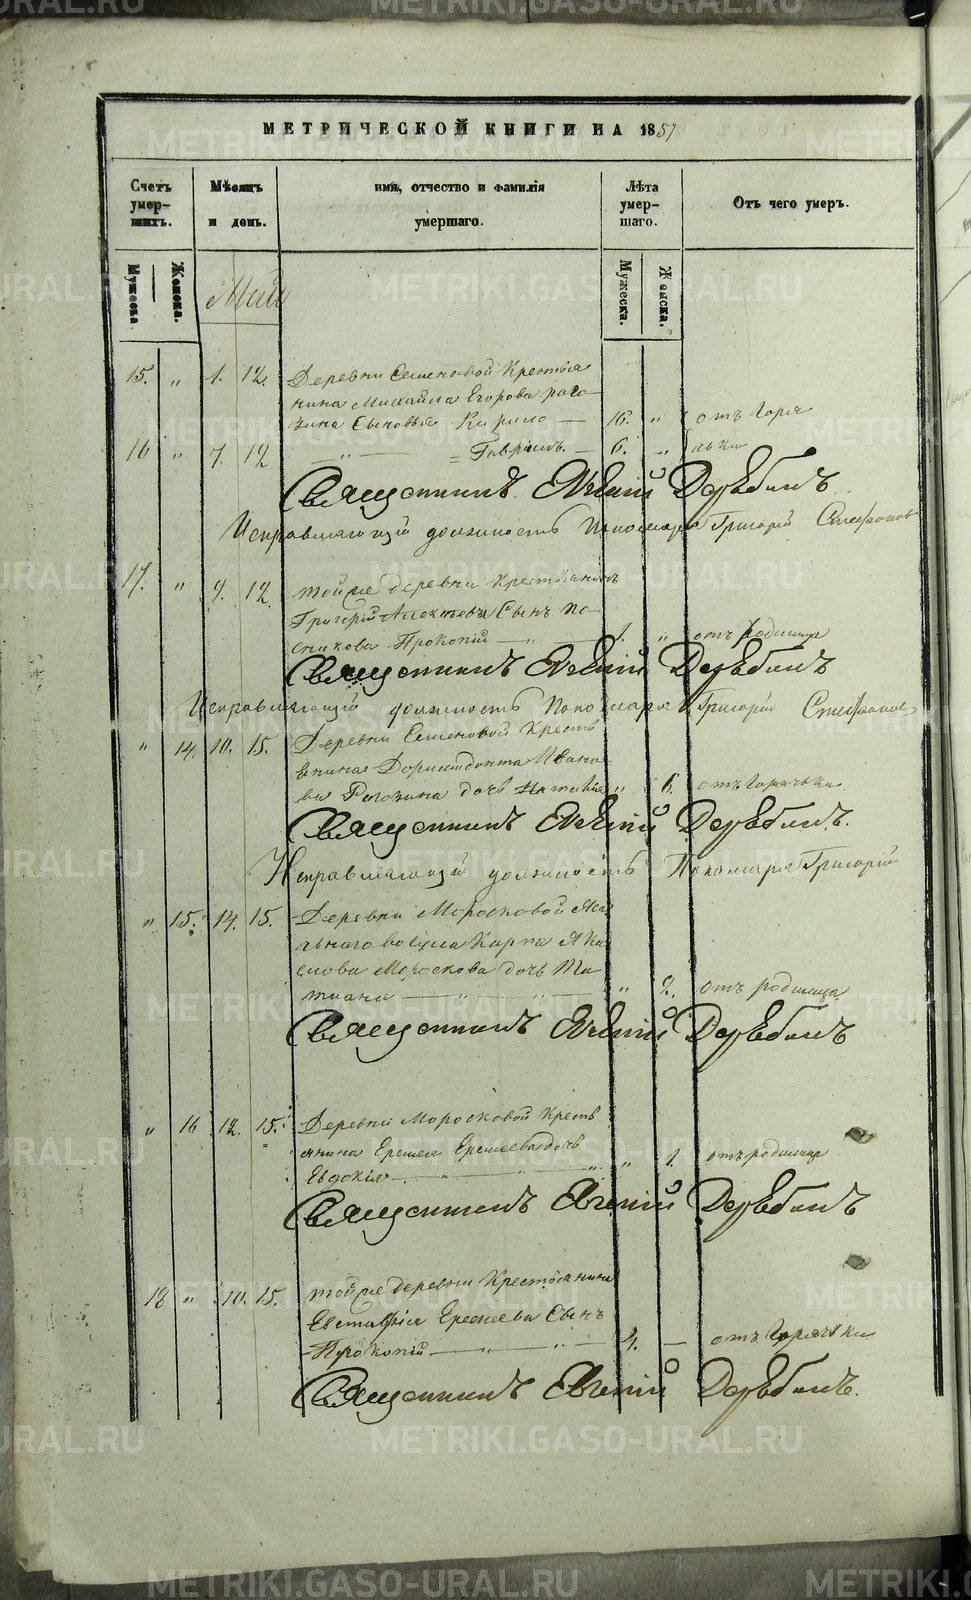 METRIKI.GASO-URAL.RU
МЕТРИЧЕСКОЙ КНИГИ НА 1857
Счетъ умер-шихъ.
Мѣсяцъ и день.
имя, отчество и фамилія умершаго.
Лѣта умер-шаго.
Отъ чего умеръ.
Мужеска
Женска.
Мужеска.
Женска.
Май
15. „ 1. 12. Деревни Семеновой Крестья
нина Михайла Егорова раго
зина Сыновья Кирило — 16. „ отъ горя
16 „ 7. 12 — „ — = Гаврiилъ. — 6. „ чьки
Священникъ Евгений Дерябинъ
Исправляющий должность Пономаря Григорий Стефановъ
17. „ 9. 12 тойже деревни Крестьянина
Григорий Алексеева Сынъ По-
сникова Прокопий — „ — 1. „ отъ родимца
Священникъ Евгений Дерябинъ
Исправляющий должность Пономаря Григорий Стефановъ
„ 14. 10. 15. Деревни Семеновой Кресть
янина Доримедонта Ивано
ва Рагозина дочь Наталiя „ 6. отъ горячьки
Священникъ Евгений Дерябинъ.
Исправляющий должность Пономаря Григорий
„ 15. 14. 15. Деревни Моросковой
Карпа Яки
мова Мороскова дочь Та
тиана — „ — „ — „ 2. отъ родимца
Священникъ Евгений Дерябинъ
„ 16 12. 15. Деревни Моросковой Кресть
янина Еремея Еремеева дочь
Евдокiя — „ — „ — „ 1. отъ родимца
Священникъ Евгений Дерябинъ
18 „ 10. 15. тойже деревни Крестьянина
Евстафiя Еремеева Сынъ
Прокопий — „ — „ — 4. — отъ горячьки
Священникъ Евгений Дерябинъ.